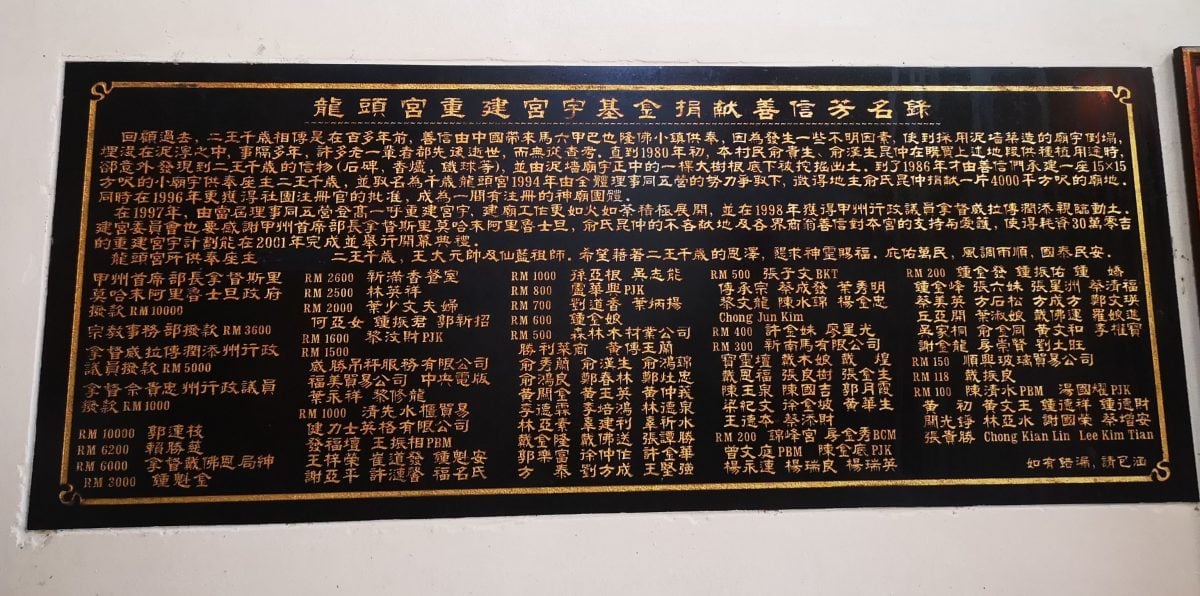 龍頭宮重建宮宇基金捐献善信芳名錄
回顧過去，二王千歲相傳是在百多年前，善信由中國帶來馬六甲巴也隆佛小鎮供奉，因為發生一些不明因素，使到採用泥墙築造的廟宇倒塌，
埋沒在泥濘之中，事隔多年，許多老一輩者都先後逝世，而無從查考。直到1980年初，本村民俞貴生、俞漢生昆仲在購買上述地段供種植用途時，
卻意外發現到二王千歲的信物(石碑，香爐，鐵珠等)，並由泥墙廟宇正中的一棵大樹根底下被挖掘出土。到了1986年才由善信們承建一座15x15
方呎的小廟宇供奉座主二王千歲，並取名為千歲龍頭宮1994年由全體理事同五營的努力爭取下，徵得地主俞氏昆仲捐献一片4000平方呎的廟地。
同時在1996年更獲得社團注册官的批准，成為一間有注册的神廟團體。
在1997年，由當屆理事同五營登高一呼重建宮宇，建廟工作更如火如荼積極展開，並在1998年獲得甲州行政議員拿督威拉傅潤添親臨動土。
建宮委員會也要感謝甲州首席部長拿督斯里莫哈末阿里魯士旦，俞氏昆仲的不吝献地及各界商翁善信對本宮的支持和愛護，使得耗資30萬零吉
的重建宮宇計劃能在2001年完成並舉行開幕典禮。
龍頭宮所供奉座主 二王千歲，王大元師及仙藍祖師。希望藉著二王千歲的恩澤，懇求神靈賜福。庇佑萬民，風調雨順，國泰民安。
甲州首席部長拿督斯里
莫哈末阿里魯士旦政府
撥款 RM 10000
宗教事務部撥款 RM 3600
拿督威拉傅潤添州行政
議員撥款 RM 5000
拿督余貴忠州行政議員
撥款 RM 1000
RM 10000 郭蓮枝
RM 6200 賴勝慈
RM 6000 拿督戴佛恩局紳
RM 3000 鍾魁金
RM 2600 新滿香餐室
RM 2500 林英祥
RM 2000 葉少文夫婦
何亞女 鍾振君 郭新招
RM 1600 黎汶財PJK
RM 1500
威勝吊秤服務有限公司
福美貿易公司 中央電版
葉永祥 黎修龍
RM 1000 清先水櫃貿易
健力士英格有限公司
發福壇 王振相PBM
王祥榮 崔道發 鍾魁安
謝亞平 許漣馨 福名氏
RM 1000 孫亞根 吳志能
RM 800 盧華興PJK
RM 700 劉道香 葉炳揚
RM 600 鍾金娘
RM 500 森林木材業公司
勝利菜商 黃傅玉蘭
俞秀蘭 俞漢生 俞鴻錦
俞鴻良 鄭春林 鄭灶忠
黃關金 黃玉英 黃仲義
李德霖 李培鴻 林德泉
林亞素 辜建利 辜新水
戴金隆 戴佛送 張譚勝
郭樂富 徐仲作 許金華
方泰 劉方成 王堅強
RM 500 張子文BKT
傅承宗 蔡成發 葉秀明
黎文龍 陳水錦 楊金忠
Chong Jun Kim
RM 400 許金妹 廖星光
RM 300 新南馬有限公司
寶靈壇 戴木娘 戴煌
戴恩福 張良樹 張金生
陳玉泉 陳國吉 郭月霞
梁祀文 徐金城 黃華生
王德本 蔡添財
RM 200 錦峰宮 房金秀BCM
曾文庭PBM 陳金底PJK
楊永蓮 楊瑞良 楊瑞英
RM 200 鍾金發 鍾振佑 鍾嬌
鍾金峰 張六妹 張星洲 蔡清福
蔡美英 方石松 方成方 鄭文瑛
丘亞開 葉淑娘 戴佛運 羅娘進
吳家桐 俞金同 黃文和 李權寶
謝金龍 房榮賢 劉土旺
RM 150 順興玻璃貿易公司
RM 118 戴振良
RM 100 陳清水PBM 湯國耀PJK
黃初 黃文玉 鍾德祥 鍾德財
關光錚 林亞水 謝國榮 蔡增安
張貴勝 Chong Kian Lin Lee Kim Tian
如有錯漏，請包涵